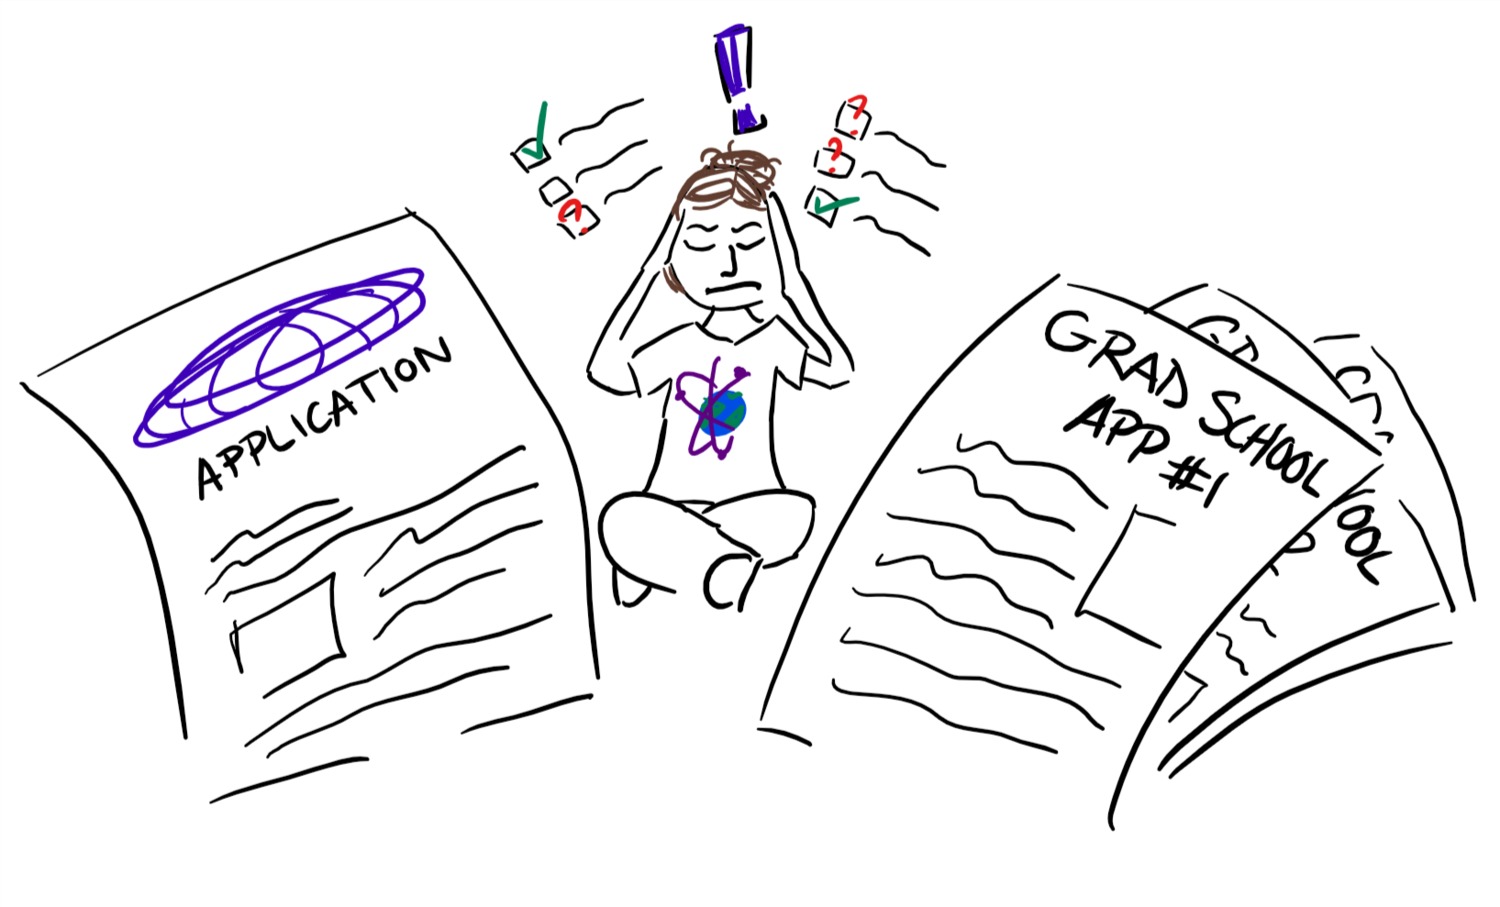 APPLICATION
GRAD SCHOOL
APP #1
GR
G
OOL